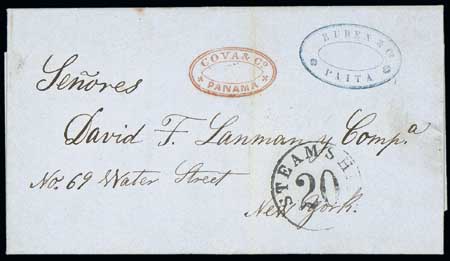 RUDEN & Cº
PAITA
COVA & Cº
PANAMA
Señores
David F. Lanman y Compª
STEAMSH
20
No. 69 Water Street
New York.